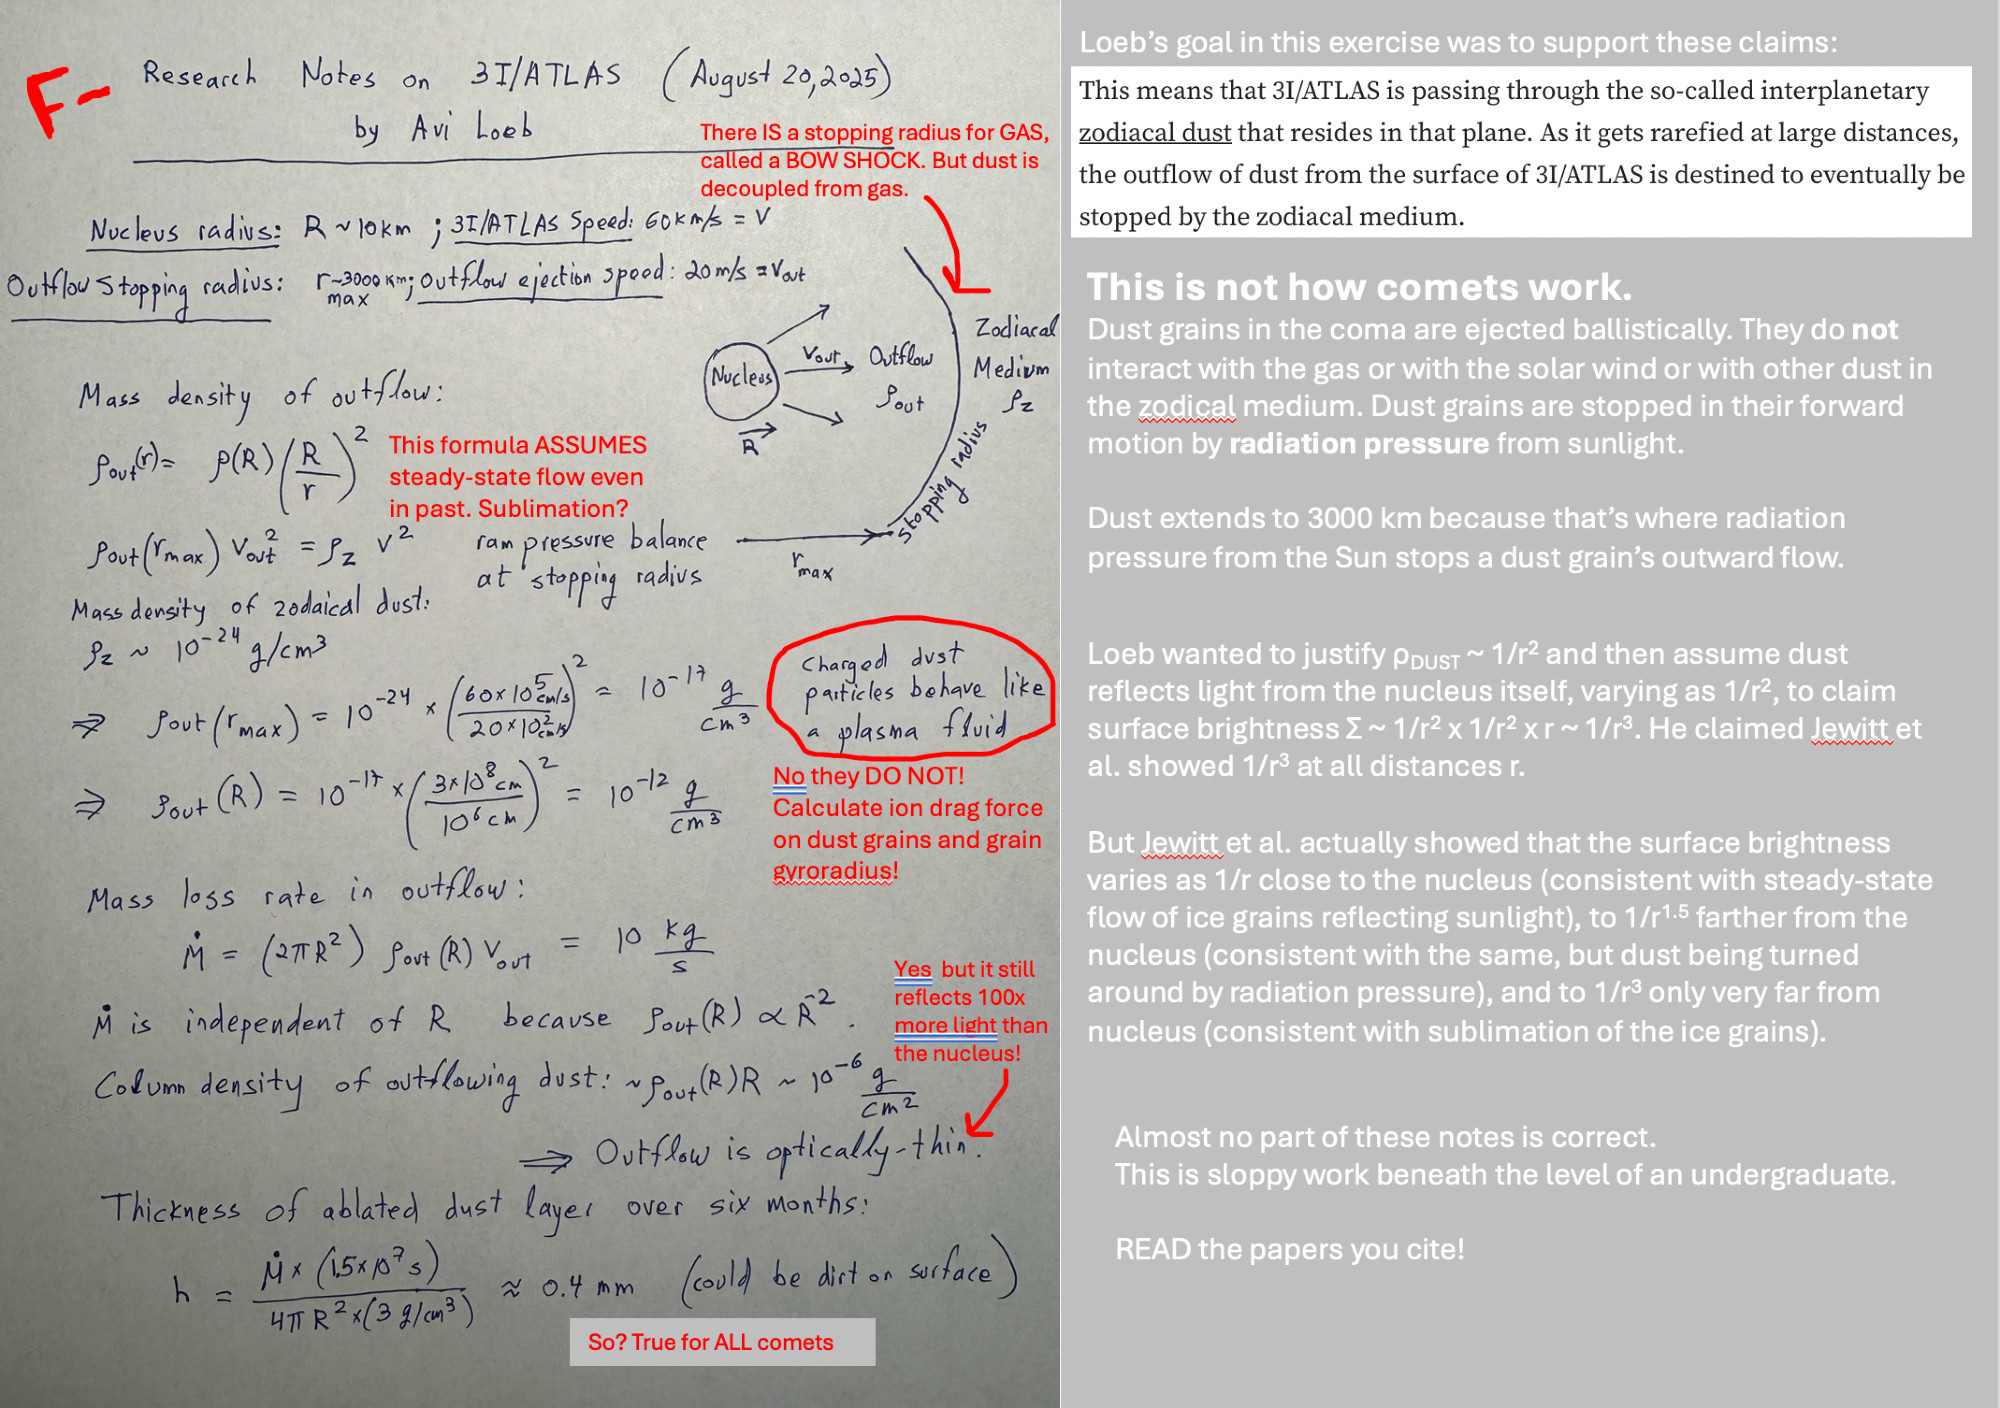 F-
Research Notes on 3I/ATLAS (August 20, 2025)
by Avi Loeb
There IS a stopping radius for GAS,
called a BOW SHOCK. But dust is
decoupled from gas.
Nucleus radius: R ~ 10km ; 3I/ATLAS Speed: 60km/s = V
Outflow Stopping radius: r_max ~3000 km; outflow ejection speed: 20m/s = Vout
Nucleus
R
Vout
Outflow
ρout
Zodiacal
Medium
ρz
stopping radius
r_max
Mass density of outflow:
ρout(r) = ρ(R) (R/r)²
This formula ASSUMES
steady-state flow even
in past. Sublimation?
ρout(r_max) Vout² = ρz V²
ram pressure balance
at stopping radius
Mass density of zodaical dust:
ρz ~ 10⁻²⁴ g/cm³
⇒ ρout(r_max) = 10⁻²⁴ × (60×10⁵ cm/s / 20×10² cm/s)² = 10⁻¹⁷ g/cm³
Charged dust
particles behave like
a plasma fluid
No they DO NOT!
Calculate ion drag force
on dust grains and grain
gyroradius!
⇒ ρout(R) = 10⁻¹⁷ × (3×10⁸ cm / 10⁶ cm)² = 10⁻¹² g/cm³
Mass loss rate in outflow:
Ṁ = (2πR²) ρout(R) Vout = 10 kg/s
Ṁ is independent of R because ρout(R) ∝ R⁻².
Yes but it still
reflects 100x
more light than
the nucleus!
Column density of outflowing dust: ~ρout(R)R ~ 10⁻⁶ g/cm²
⇒ Outflow is optically-thin.
Thickness of ablated dust layer over six months:
h = Ṁ × (1.5×10⁷ s) / 4πR²×(3 g/cm³) ≈ 0.4 mm (could be dirt on surface)
So? True for ALL comets
Loeb's goal in this exercise was to support these claims:
This means that 3I/ATLAS is passing through the so-called interplanetary
zodiacal dust that resides in that plane. As it gets rarefied at large distances,
the outflow of dust from the surface of 3I/ATLAS is destined to eventually be
stopped by the zodiacal medium.
This is not how comets work.
Dust grains in the coma are ejected ballistically. They do not
interact with the gas or with the solar wind or with other dust in
the zodical medium. Dust grains are stopped in their forward
motion by radiation pressure from sunlight.
Dust extends to 3000 km because that's where radiation
pressure from the Sun stops a dust grain's outward flow.
Loeb wanted to justify ρDUST ~ 1/r² and then assume dust
reflects light from the nucleus itself, varying as 1/r², to claim
surface brightness Σ ~ 1/r² x 1/r² x r ~ 1/r³. He claimed Jewitt et
al. showed 1/r³ at all distances r.
But Jewitt et al. actually showed that the surface brightness
varies as 1/r close to the nucleus (consistent with steady-state
flow of ice grains reflecting sunlight), to 1/r¹·⁵ farther from the
nucleus (consistent with the same, but dust being turned
around by radiation pressure), and to 1/r³ only very far from
nucleus (consistent with sublimation of the ice grains).
Almost no part of these notes is correct.
This is sloppy work beneath the level of an undergraduate.
READ the papers you cite!